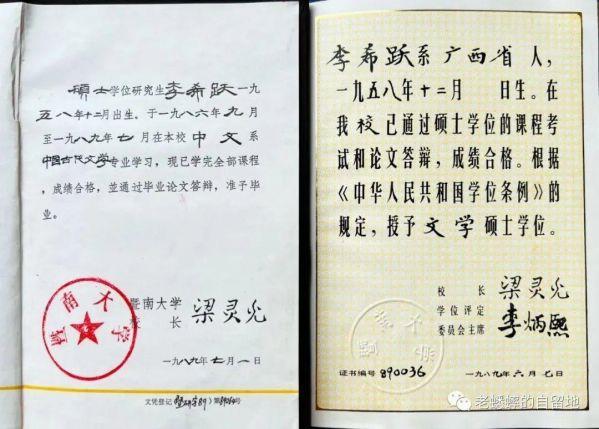 硕士学位研究生李希跃一九
五八年十二月出生。于一九八六年九月
至一九八九年七月在本校中文系
中国古代文学专业学习，现已学完全部课程
，成绩合格，並通过毕业论文答辩，准予毕
业。
暨南大学
暨南大学
校 长 梁灵光
一九八九年七月一日
文凭登记(暨研字89)第 号
李希跃系广西省人，
一九五八年十二月 日生。在
我校已通过硕士学位的课程考
试和论文答辩，成绩合格。根据
《中华人民共和国学位条例》的
规定，授予文学硕士学位。
校 长 梁灵光
学位评定
委员会主席 李炳熙
证书编号 890036 一九八九年六月七日
老蟋蟀的自留地